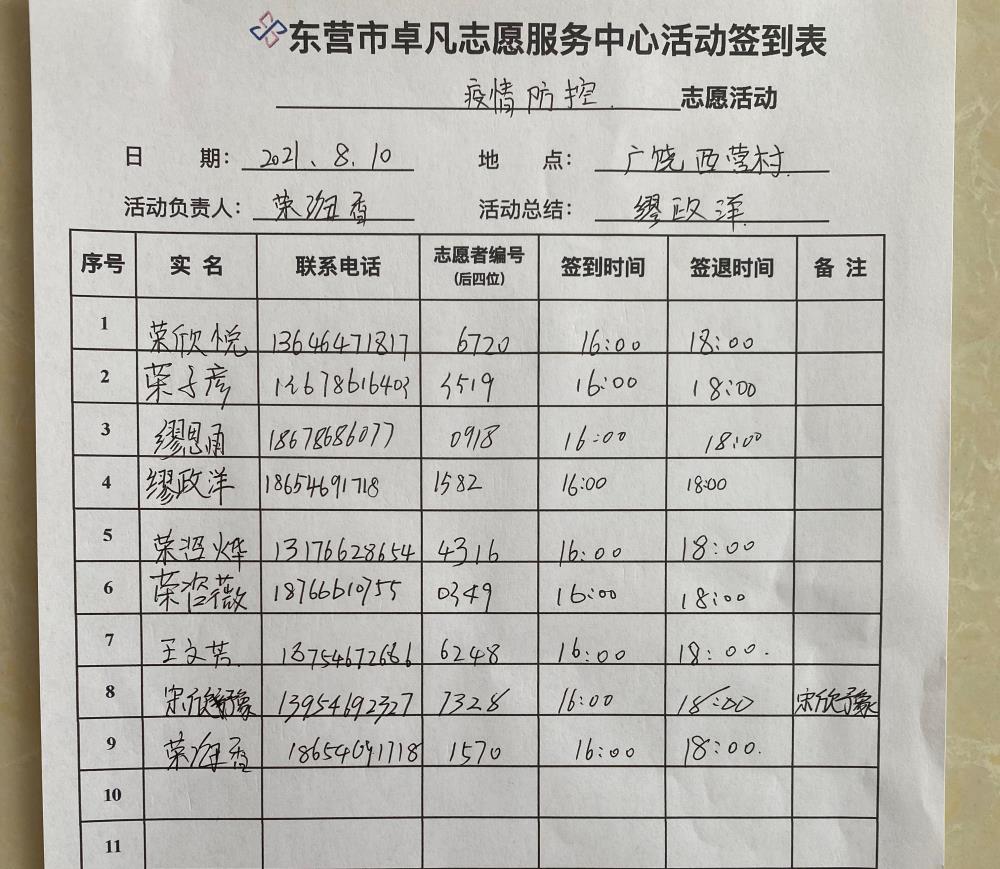 东营市卓凡志愿服务中心活动签到表
疫情防控 志愿活动
日 期: 2021、8.10 地 点: 广饶西营村
活动负责人: 荣海香 活动总结: 缪政洋
序号 实 名 联系电话 志愿者编号 (后四位) 签到时间 签退时间 备 注
1 荣欣悦 13646471817 6720 16:00 18:00
2 荣子彦 13678616403 3519 16:00 18:00
3 缪思雨 18678686077 0918 16:00 18:00
4 缪政洋 18654691718 1582 16:00 18:00
5 荣烨 13176628654 4316 16:00 18:00
6 荣洺薇 18766610755 0349 16:00 18:00
7 王文芳 13754672686 6248 16:00 18:00.
8 宋欣豫 13954692327 7328 16:00 18:00 宋欣豫
9 荣海香 18654691718 1570 16:00 18:00.
10
11